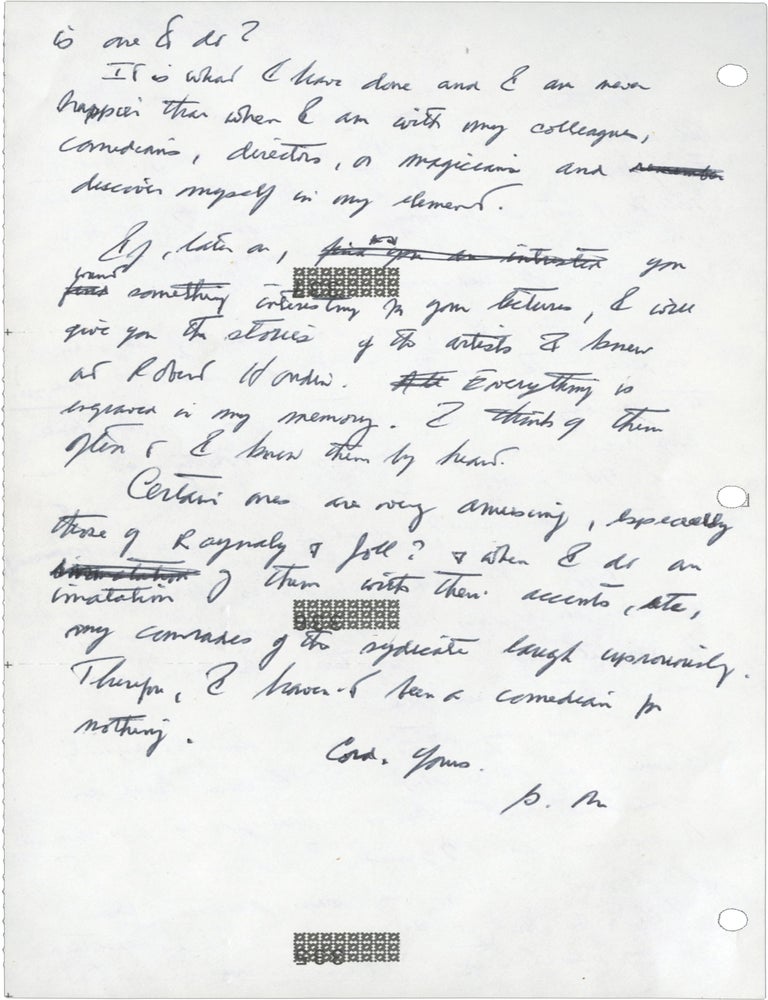 is one to do?
It is what I have done and I am never
happier than when I am with my colleagues,
comedians, directors, or magicians and remember
discover myself in my element.
If, later on, find you are interested you
want
find something interesting in your lectures, I will
give you the stories of the artists I knew
at Robert Houdin. All Everything is
engraved in my memory. I think of them
often & I know them by heart.
Certain ones are very amusing, especially
those of Raynaly & Joll? & when I do an
of them with their accents, etc,
imatation
my comrades of the sydicate laugh uproriously.
Therefor, I haven't been a comedian for
nothing.
Cord. Yours.